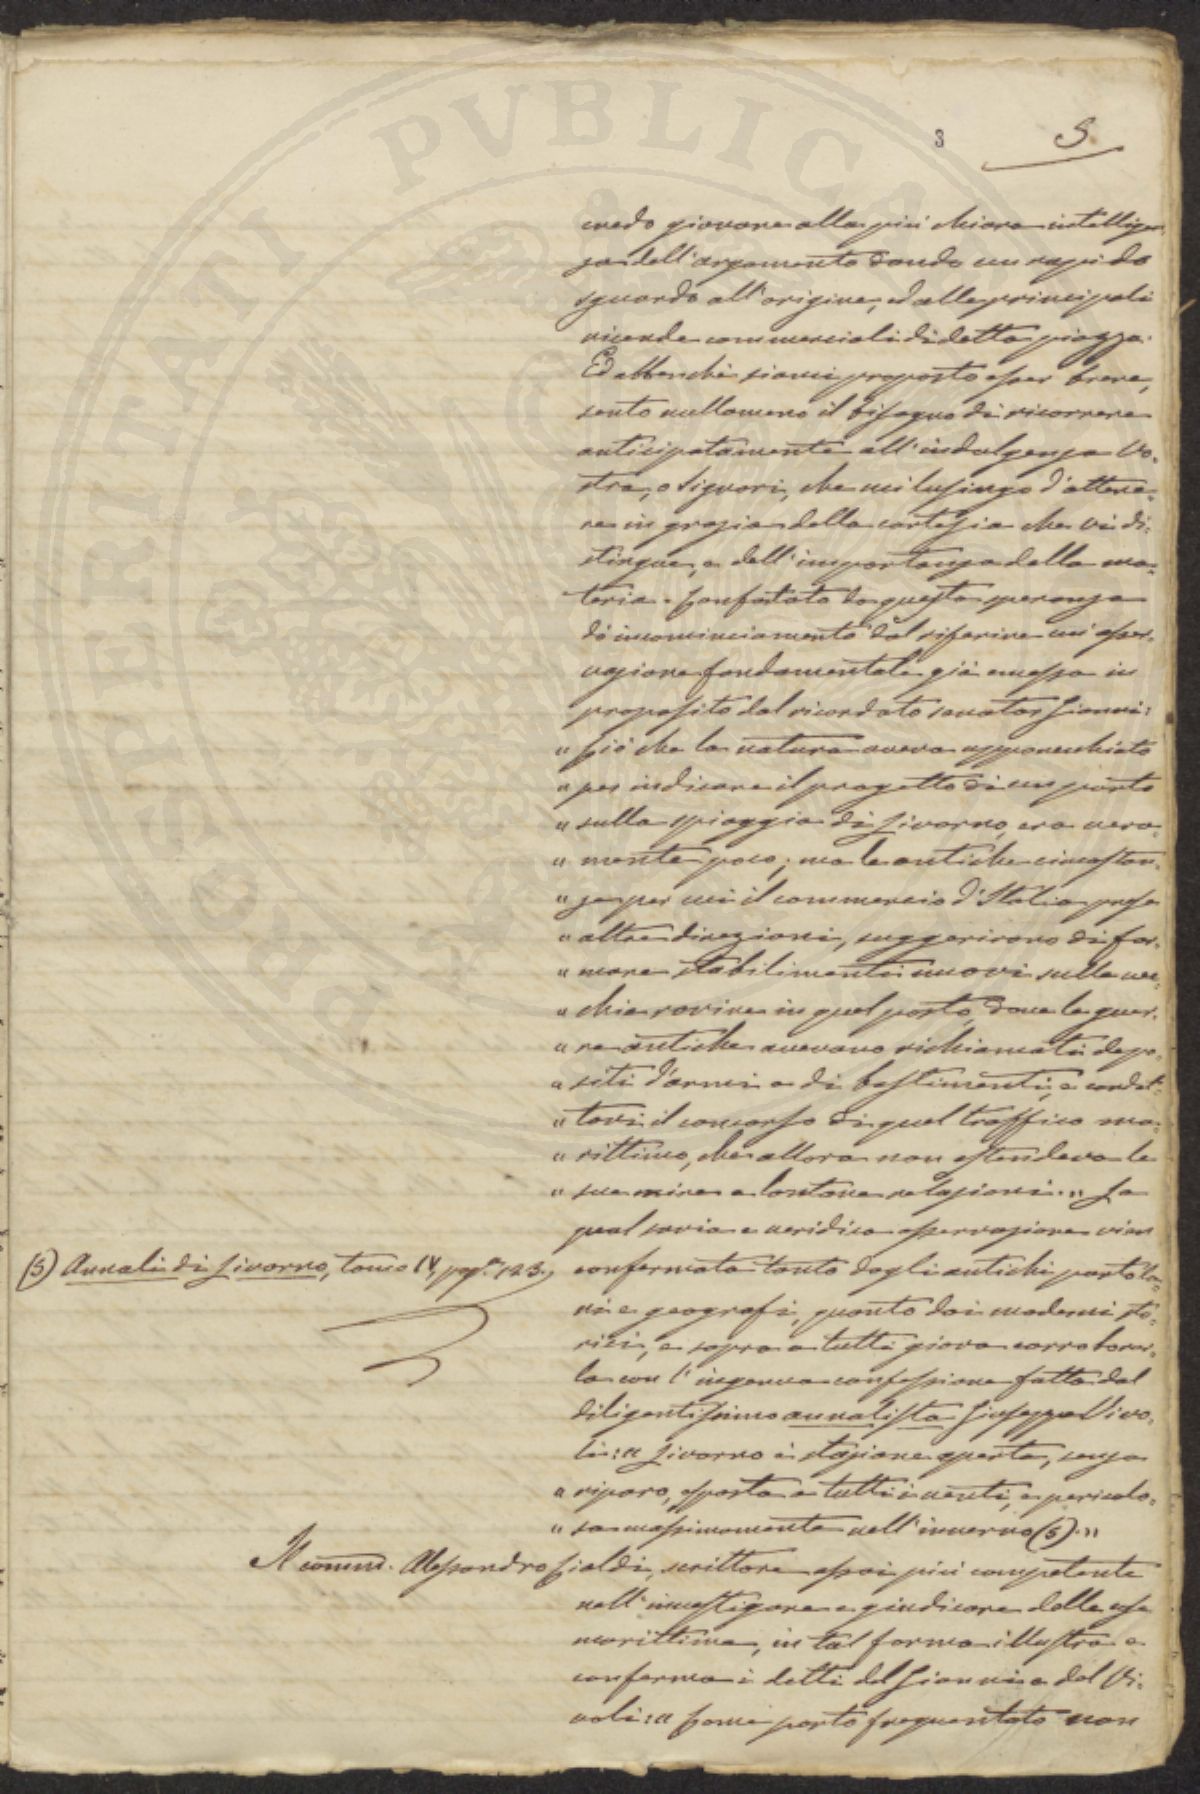 PROSPERITATI PVBLICAE
3 5.
credo giovare alla più chiara intelligen
za dell'argomento dando un rapido
sguardo all'origine, ed alle principali
vicende commerciali di detta piazza.
Ed abbenchè siami proposto esser breve,
sento nullameno il bisogno di ricorrere
anticipatamente all'indulgenza Vo-
stra, o Signori, che mi lusingo d'ottene-
re in grazia della cortesia che vi di-
stingue, e dell'importanza della ma-
teria. Confortato da questa speranza
dò incominciamento dal riferire un'osser-
vazione fondamentale già emessa in
proposito dal ricordato senator Gianni:
" Ciò che la natura aveva apparecchiato
" per indicare il progetto di un porto
" sulla spiaggia di Livorno, era vera-
" mente poco; ma le antiche circostan-
" ze per cui il commercio d'Italia prese
" altre direzioni, suggerirono di for-
" mare stabilimenti nuovi sulle vec-
" chie rovine in quel posto, dove le guer-
" re antiche avevano richiamati depo-
" siti d'armi e di bastimenti, e condot-
" tovi il concorso di quel traffico ma-
" rittimo, che allora non estendeva le
" sue mire a lontane relazioni." La
qual savia e veridica osservazione vien
confermata tanto dagli antichi portola-
ni e geografi, quanto dai moderni sto-
rici, e sopra a tutti giova corroborar-
la con l'ingenua confessione fatta dal
diligentissimo annalista Giuseppe Vivo-
li: " Livorno è stazione aperta, senza
" riparo, esposta a tutti i venti, e pericolo-
" sa massimamente nell'inverno (5)."
(5) Annali di Livorno, tomo IV, pag.ª 123.
Il comm. Alessandro Cialdi, scrittore assai più competente
nell'investigare e giudicare delle cose
marittime, in tal forma illustra e
conferma i detti del Gianni e del Vi-
voli: " Come porto frequentato non